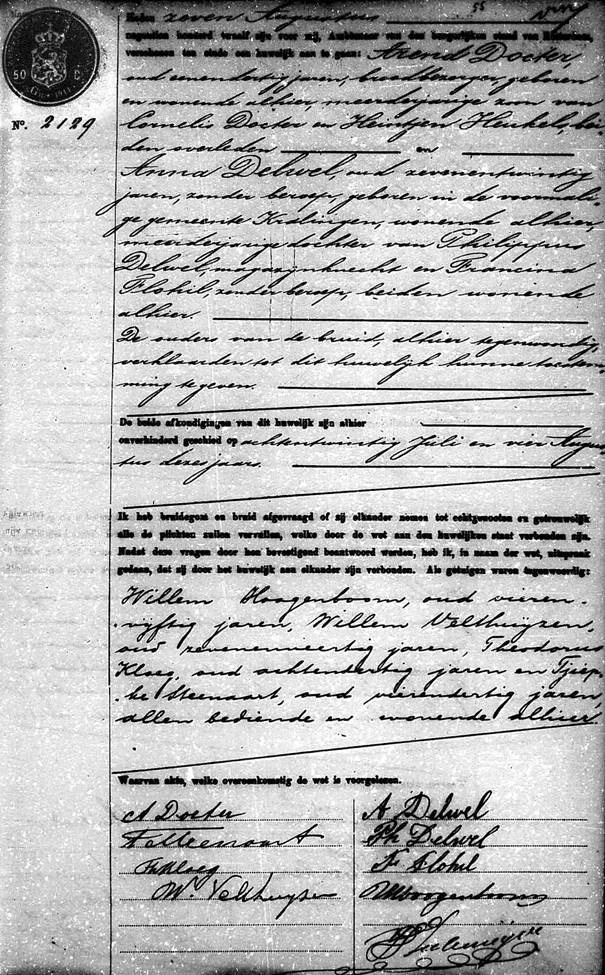 50 C.
Heden zeven Augustus
negentien honderd twaalf zijn voor mij, Ambtenaar van den burgerlijken stand van Rotterdam,
verschenen ten einde een huwelijk aan te gaan: Arend Docter,
oud eenendertig jaren, broodbezorger, geboren
en wonende alhier, meerderjarige zoon van
Nº. 2129
Cornelis Docter en Heintjen Heukel, bei-
den overleden en
Anna Delwel, oud zevenentwintig
jaren, zonder beroep, geboren in de voormali-
ge gemeente Kralingen, wonende alhier,
meerderjarige dochter van Philippus
Delwel, magazynknecht en Francina
Flohil, zonder beroep, beiden wonende
alhier.
De ouders van de bruid, alhier tegenwoordig,
verklaarden tot dit huwelijk hunne toestem-
ming te geven.
De beide afkondigingen van dit huwelijk zijn alhier
onverhinderd geschied op achtentwintig Juli en vier Augus-
tus dezes jaars.
Ik heb bruidegom en bruid afgevraagd of zij elkander nemen tot echtgenooten en getrouwelijk
alle de plichten zullen vervullen, welke door de wet aan den huwelijken staat verbonden zijn.
Nadat deze vragen door hen bevestigend beantwoord werden, heb ik, in naam der wet, uitspraak
gedaan, dat zij door het huwelijk aan elkander zijn verbonden. Als getuigen waren tegenwoordig:
Willem Hoogenboom, oud vieren-
vyftig jaren, Willem Velthuyzen,
oud zevenenveertig jaren, Theodorus
Kloeg, oud achtendertig jaren en Tjiep-
ke Steenaart, oud vierendertig jaren,
allen bediende en wonende alhier.
Waarvan akte, welke overeenkomstig de wet is voorgelezen.
A Docter
A Delwel
Ph Delwel
Th Kloeg
F. Flohil
W. Velthuyzen
WHoogenboom